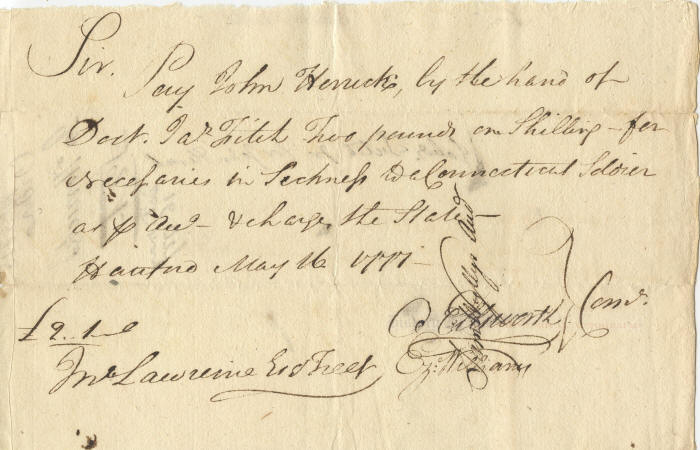 Sir.
Pay John Herrick, by the hand of
Doct. Jaˢ Fitch Two pounds one Shilling for
Necessaries in Sickness to a Connecticut Soldier
as ⅌ acc & charge the State
Hartford May 16 1777
£2..1
E. Wms
Com
Jnº Lawrence Esq Treas